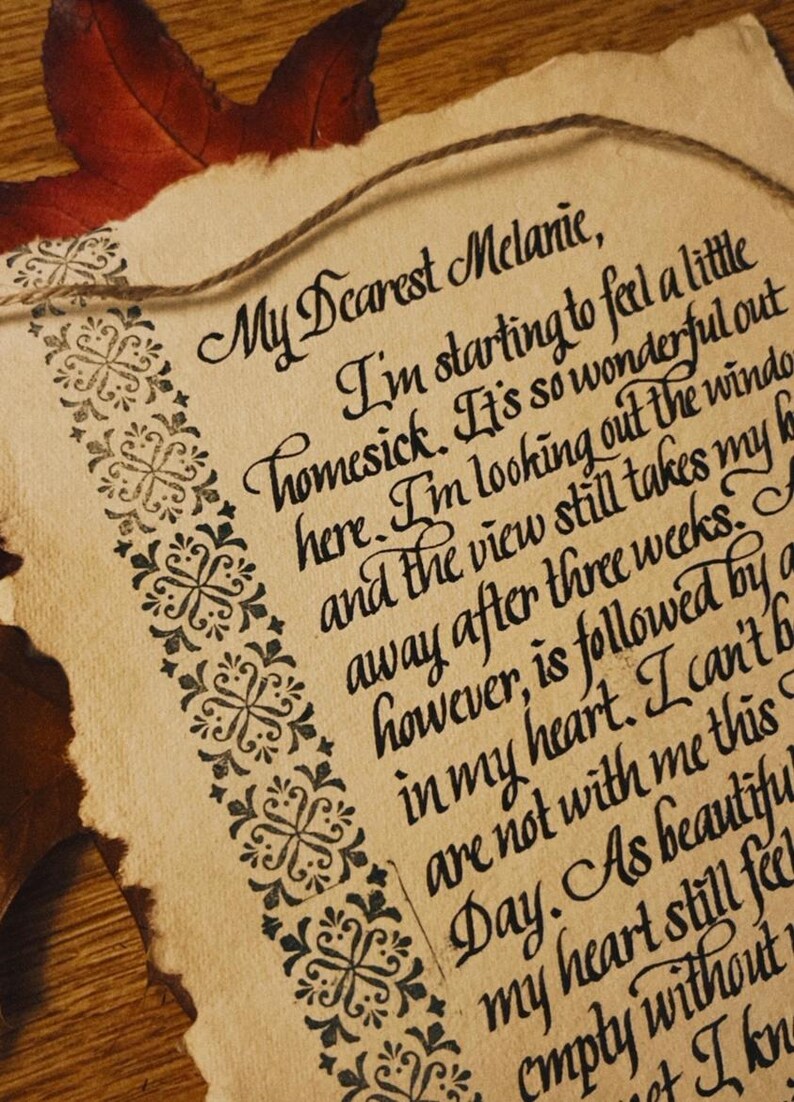 My Dearest Melanie,
I'm starting to feel a little
homesick. It's so wonderful out
here. I'm looking out the
and the view still takes my
away after three weeks.
however, is followed by
in my heart. I can't
are not with me this
Day. As beautiful
my heart still
empty without
I